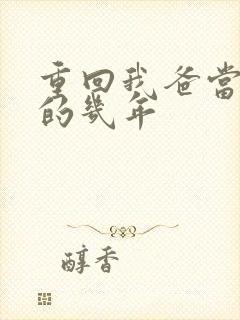 重回我爸當
的幾年
醇香